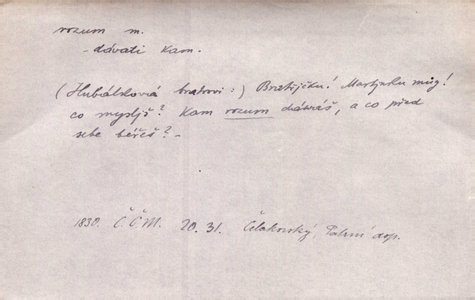 rozum m.
- dávati kam.
( Hubálková bratrovi :) Bratřjčku! Martjnku můg!
co mysljš? Kam rozum dáwáš, a co před
sebe béřeš? -
1830. Č.Č.M. 20. 31. Čelakovský, Palmi dop.